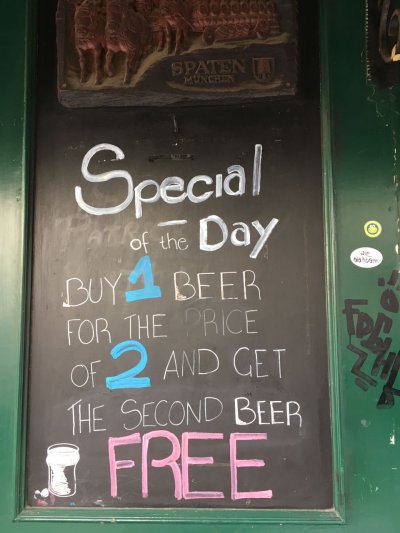 SPATEN
MÜNCHEN
Special
of the Day
BUY 1 BEER
FOR THE PRICE
OF 2 AND GET
THE SECOND BEER
FREE